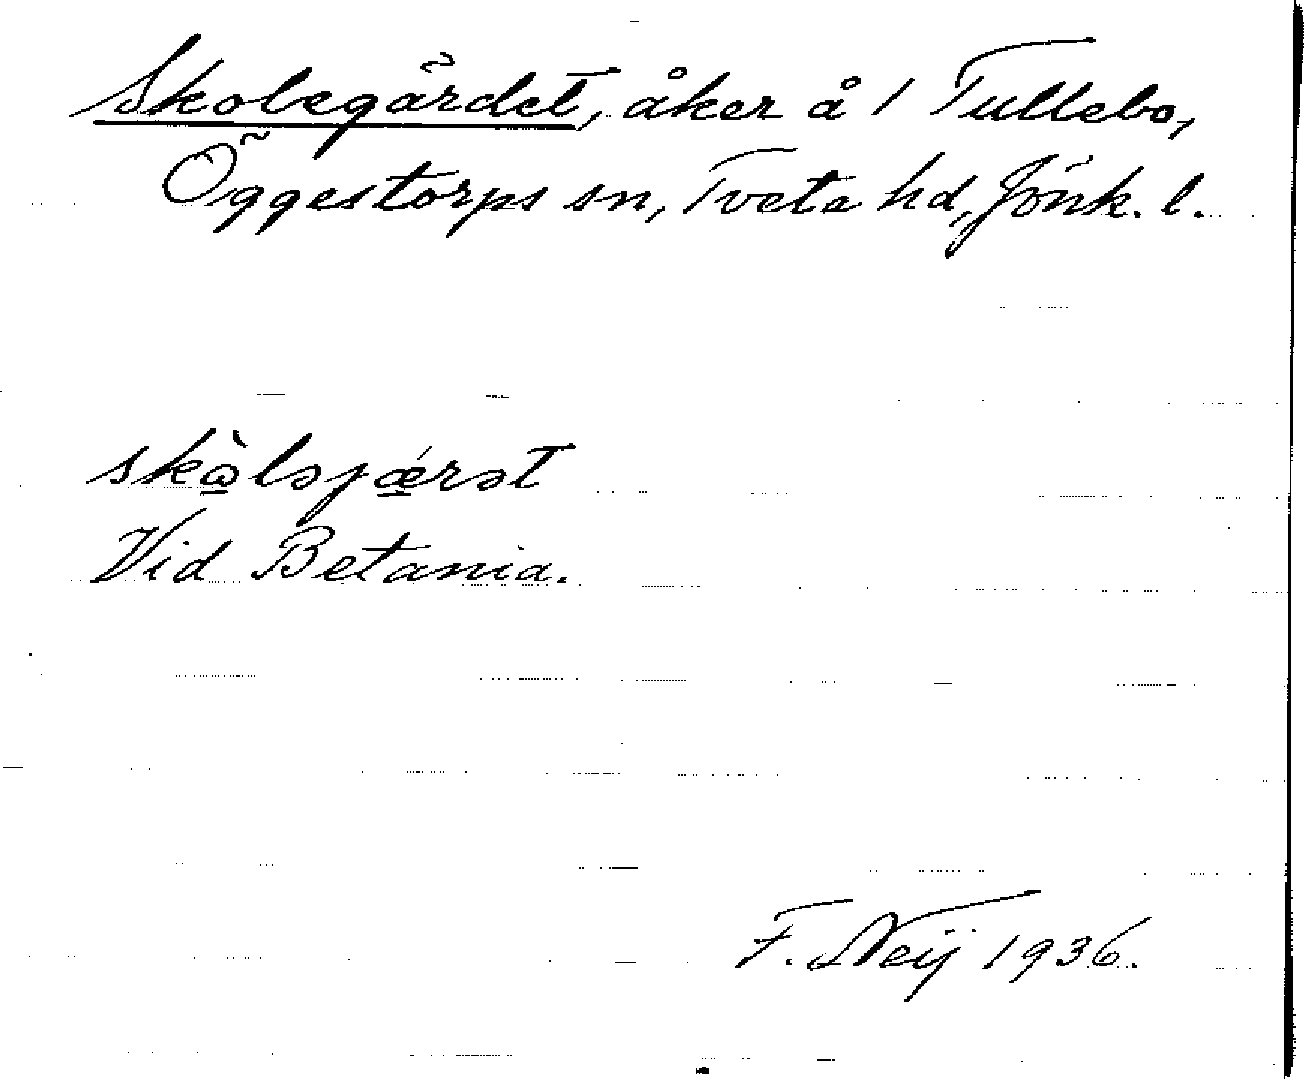 Skolegärdet, åker å 1 Tullebo,
Öggestorps sn, Tveta hd, Jönk. l.
skὼləjǽrət
Vid Betania.
F. Neij 1936.